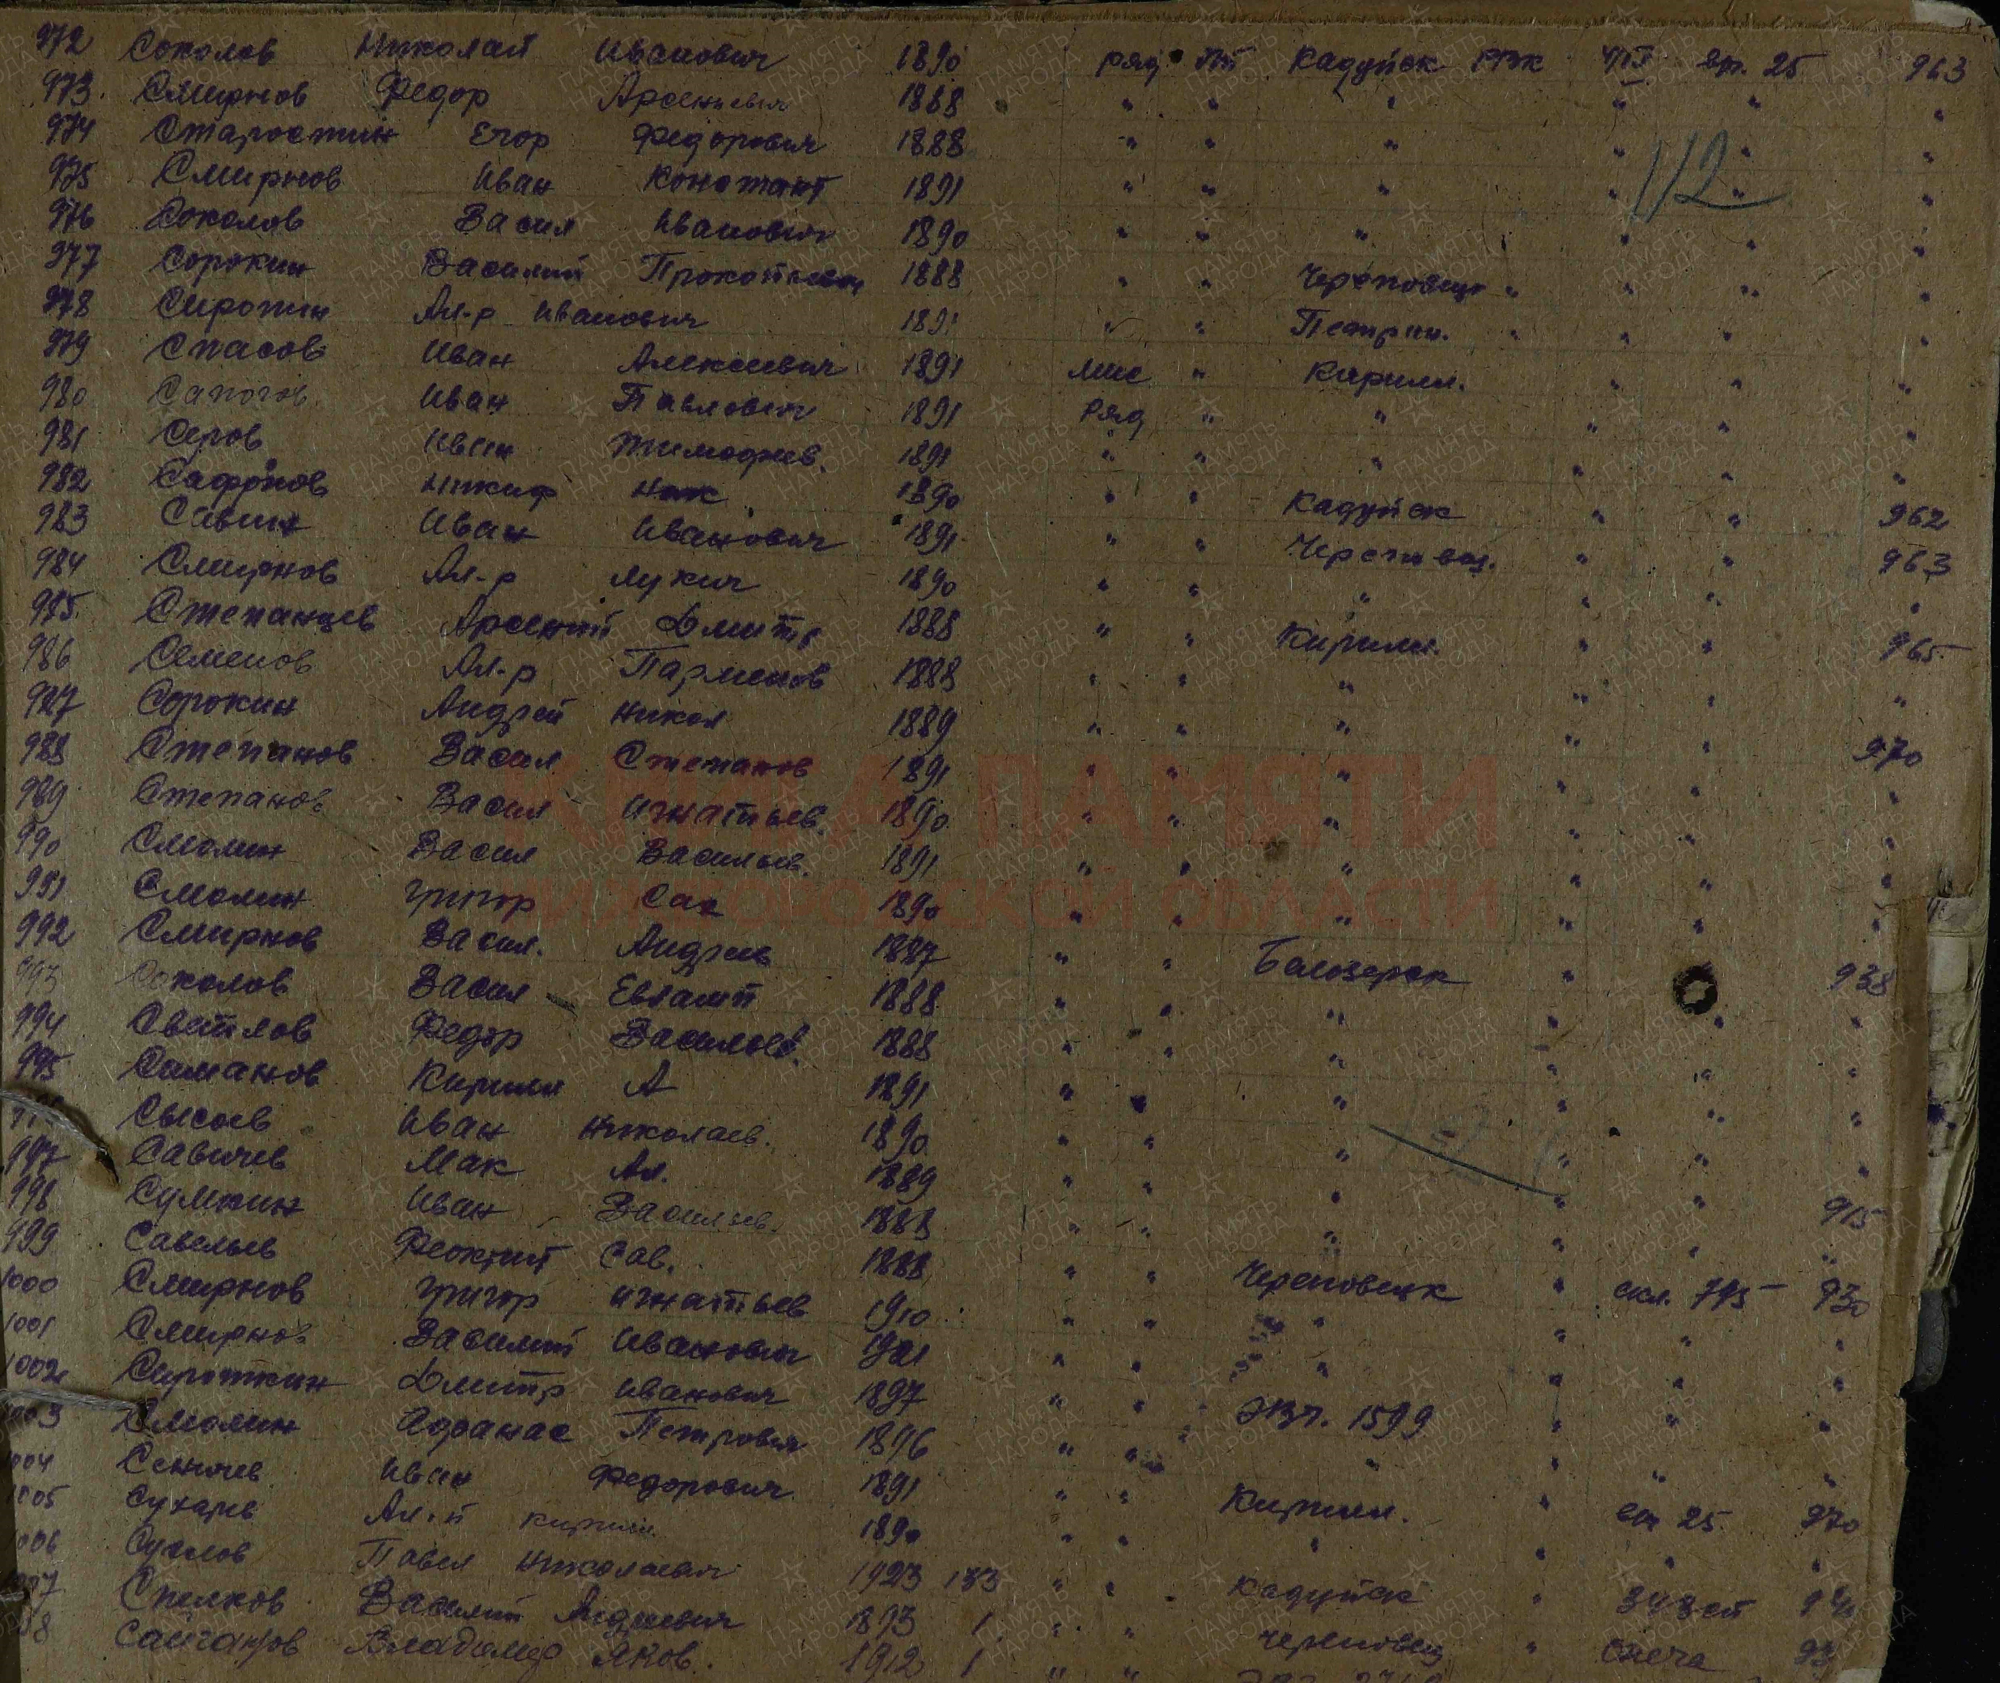 972 Соколов Николай Иванович 1890 ряд Кадуйск РВК 25 963
973 Смирнов Федор Арсеньевич 1888 " " " " " "
974 Старостин Егор Федорович 1888 " " " " " "
112
975 Смирнов Иван Констант 1891 " " " " " "
976 Соколов Васил Иванович 1890 " " " " " "
977 Сорокин Василий Прокопьевич 1888 " " Череповец " " " "
978 Ал-р Иванович " " Петрин. " " " "
979 Спасов Иван Алексеевич 1891 " Кирилл. " " "
980 Сапогов Иван Павлович 1891 ряд " " " " "
981 Серов Иван Тимофеев. 1891 " " " " " "
982 Сафронов Никиф Ник 1890 " " Кадуйск " " 962
983 Савин Иван Иванович 1891 " " Черепов. " " 963
984 Смирнов Ал-р Лукич 1890 " " " " " "
985 Степанцев Арсений Дмитр 1888 " " Кирилл. " " 965
986 Семенов Ал-р Парменов 1888 " " " " " "
987 Сорокин Андрей Никол 1889 " " " " " 970
988 Степанов Васил Степанов 1891 " " " " " "
989 Степанов Васил Игнатьев. 1890 " " " " " "
990 Смолин Васил Васильев. 1891 " " " " " "
991 Смолин Григор 1890 " " " " " "
992 Смирнов Васил. Андреев 1887 " " Белозерск " 938
993 Соколов Васил Евламп 1888 " " " " " "
994 Светлов Федор Васильев. 1888 " " " " " "
995 Саманов Кирилл А 1891 " " " " " "
Сысоев Иван Николаев. 1890 " " " " " "
997 Савичев Мак Ал. 1889 " " " " " 915
998 Сумкин Иван Васильев. 1888 " " " " " "
999 Савельев Феоктист Сав. 1888 " " Череповецк " 795 930
1000 Смирнов Григор Игнатьев 1910 " " " " " "
1001 Смирнов Василий Иванович " " " " " "
1002 Сироткин Дмитр Иванович 1897 " " 1599 " " "
1003 Смолин Афанас Петрович 1896 " " " " " "
1004 Иван Федорович 1891 " " Кирилл. " 25 970
1005 Сухарев Ал-й Кирилл 1890 " " " " " "
1006 Суслов Павел Николаевич 1923 133 " " Кадуйск "
1007 Спелков Василий Андреевич 1893 1 " " Череповец "
Владимир Яков. 1912 1 " "
КНИГА ПАМЯТИ
НИЖЕГОРОДСКОЙ ОБЛАСТИ
ПАМЯТЬ НАРОДА